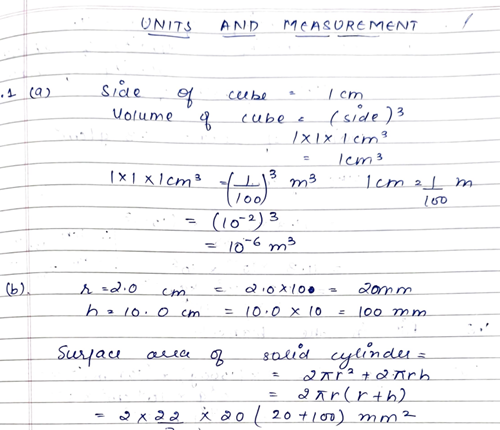 UNITS AND MEASUREMENT
.1 (a) Side of cube = 1 cm
Volume of cube = (side)³
1 x 1 x 1 cm³
= 1 cm³
1 x 1 x 1 cm³ = (1/100)³ m³ 1 cm = 1/100 m
= (10⁻²)³
= 10⁻⁶ m³
(b). r = 2.0 cm = 2.0 x 10 = 20 mm
h = 10.0 cm = 10.0 x 10 = 100 mm
Surface area of solid cylinder =
= 2πr² + 2πrh
= 2πr (r + h)
= 2 x 22 x 20 (20 + 100) mm²